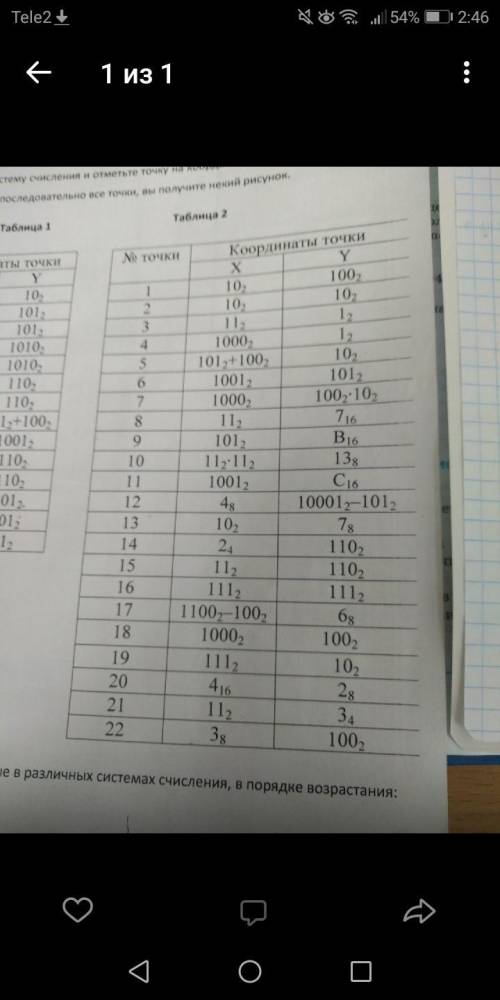 Tele2 54% 2:46
1 из 1
стему счисления и отметьте точку на
последовательно все точки, вы получите некий рисунок.
Таблица 1
аты точки
Y
10₂
101₂
101₂
1010₂
1010₂
110₂
110₂
1₂+100₂
1001₂
110₂
110₂
01₂
01₂
1₂
Таблица 2
№ точки Координаты точки
X Y
1 10₂ 100₂
2 10₂ 10₂
3 11₂ 1₂
4 1000₂ 1₂
5 101₂+100₂ 10₂
6 1001₂ 101₂
7 1000₂ 100₂·10₂
8 11₂ 7₁₆
9 101₂ B₁₆
10 11₂·11₂ 13₈
11 1001₂ C₁₆
12 4₈ 10001₂–101₂
13 10₂ 7₈
14 2₄ 110₂
15 11₂ 110₂
16 111₂ 111₂
17 1100₂–100₂ 6₈
18 1000₂ 100₂
19 111₂ 10₂
20 4₁₆ 2₈
21 11₂ 3₄
22 3₈ 100₂
е в различных системах счисления, в порядке возрастания: